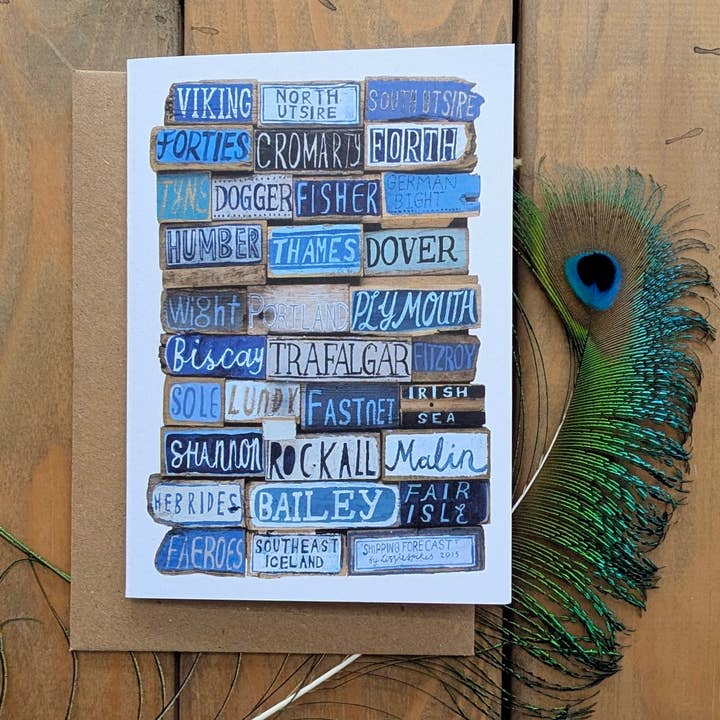 VIKING NORTH UTSIRE SOUTH UTSIRE
FORTIES CROMARTY FORTH
TYNE DOGGER FISHER GERMAN BIGHT
HUMBER THAMES DOVER
Wight PORTLAND PLYMOUTH
Biscay TRAFALGAR FITZROY
SOLE LUNDY FASTNET IRISH SEA
SHANNON ROCKALL Malin
HEBRIDES BAILEY FAIR ISLE
FAEROES SOUTHEAST ICELAND "SHIPPING FORECAST"
by Lizzie Spikes 2015